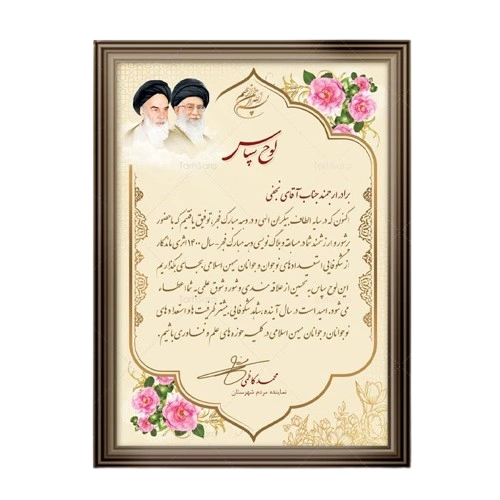 لوح سپاس
برادر ارجمند جناب آقای نجفی
اکنون که در سایه الطاف بیکران الهی و در دهه مبارک فجر، توفیق یافتیم که با حضور
پرشور و ارزشمند شما در مسابقه وبلاگ نویسی دهه مبارک فجر - سال ۱۴۰۰ اثری ماندگار
از شکوفایی استعدادهای نوجوانان و جوانان میهن اسلامی، بجای بگذاریم
این لوح سپاس به تحسین از علاقه مندی و شور و شوق علمی به شما اعطاء
می شود. امید است در سال آینده، شاهد شکوفایی بیشتر ظرفیت ها و استعدادهای
نوجوانان و جوانان میهن اسلامی در کلیه حوزه های علم و فناوری باشیم.
محمد کاظمی
نماینده مردم شهرستان